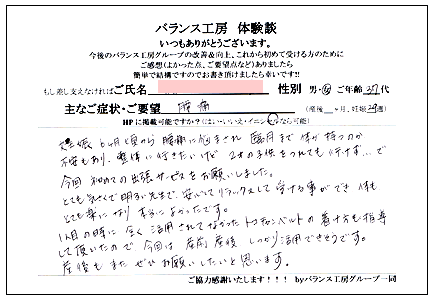 バランス工房 体験談
いつもありがとうございます。
今後のバランス工房グループの改善&向上、これから初めて受ける方のために
ご感想(よかった点、ご要望点など)ありましたら
簡単で結構ですのでお書き頂けましたら幸いです!!
もし差し支えなければご氏名 性別 男・女 ご年齢37代
主なご症状・ご要望 腰痛 (産後 ヶ月、妊娠 週)
HPに掲載可能ですか?(はい・いいえ・イニシャルなら可能)
妊娠6ヶ月頃から腰痛に悩まされ 臨月まで体が持つのか
不安もあり、整体に行きたいけど 2才の子供をつれても行けず…で
今回 初めての出張サービスをお願いしました。
とても気さくで明るい先生で、安心してリラックスして受ける事ができ 体も
とても楽になり 本当によかったです。
1人目の時に 全く活用されてなかったトコチャンベルトの着け方も指導
して頂いたので、今回は 産前産後 しっかり活用できそうです。
産後も また ぜひお願いしたいと思います。
ご協力感謝いたします!!! byバランス工房グループ一同